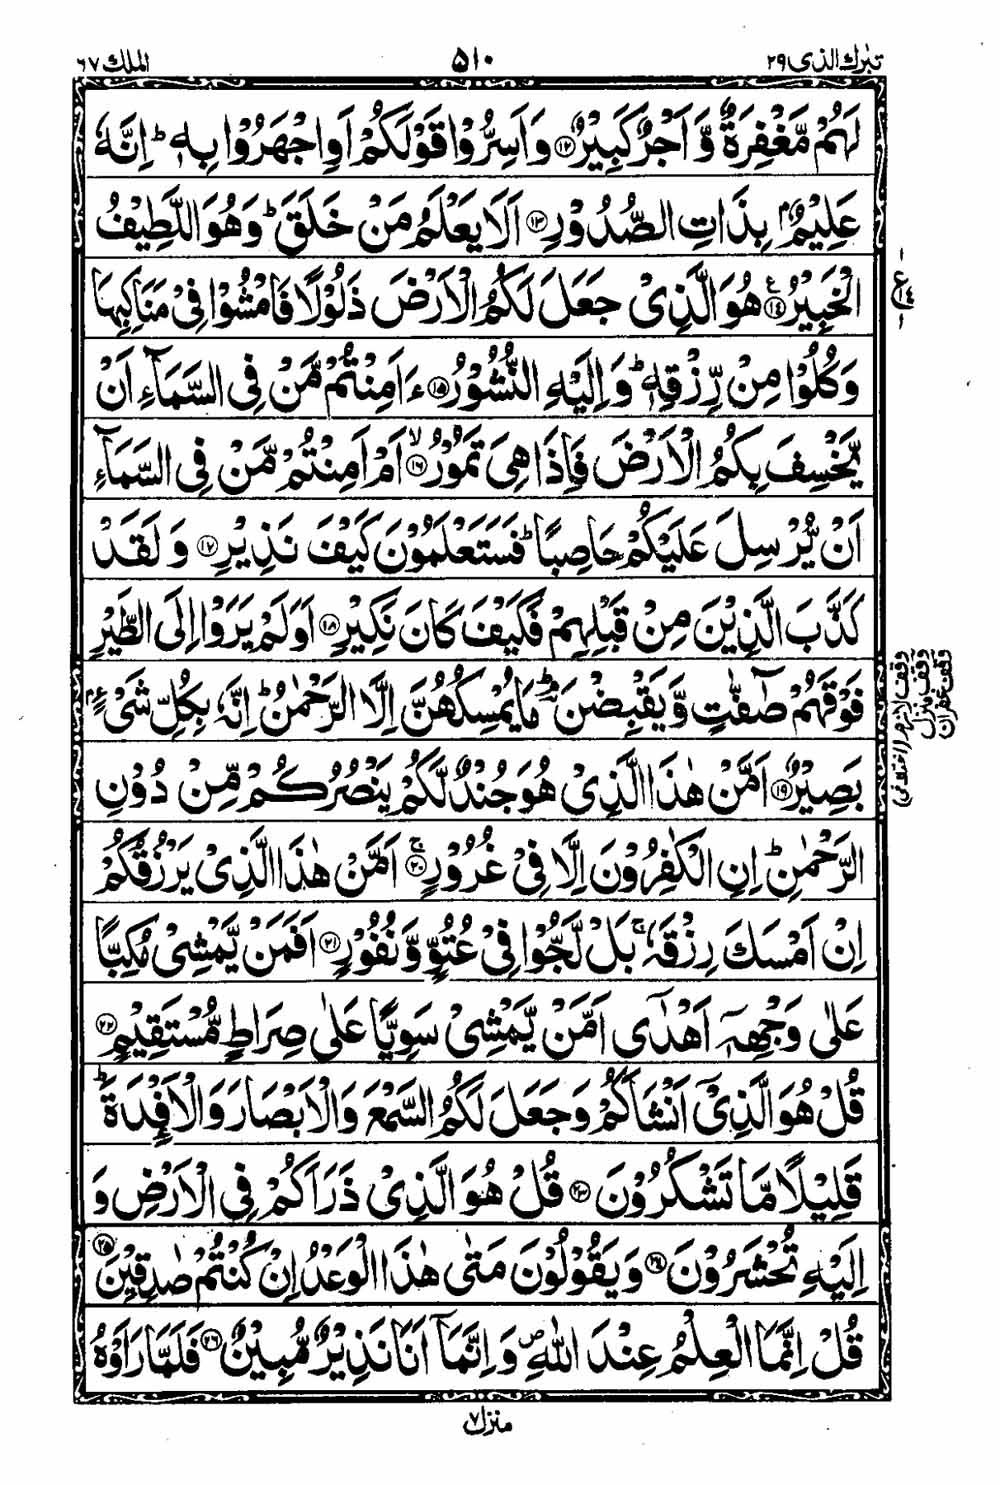 تبٰرك الذی ٢٩ ٥١٠ الملك ٦٧
لَهُمْ مَّغْفِرَةٌ وَّاَجْرٌ كَبِيْرٌ ۝١٢ وَاَسِرُّوْا قَوْلَكُمْ اَوِ اجْهَرُوْا بِهٖ ؕ اِنَّهٗ
عَلِيْمٌۢ بِذَاتِ الصُّدُوْرِ ۝١٣ اَلَا يَعْلَمُ مَنْ خَلَقَ ؕ وَهُوَ اللَّطِيْفُ
الْخَبِيْرُ ۝١٤ ع هُوَ الَّذِیْ جَعَلَ لَكُمُ الْاَرْضَ ذَلُوْلًا فَامْشُوْا فِیْ مَنَاكِبِهَا
وَكُلُوْا مِنْ رِّزْقِهٖ ؕ وَاِلَيْهِ النُّشُوْرُ ۝١٥ ءَاَمِنْتُمْ مَّنْ فِی السَّمَآءِ اَنْ
يَّخْسِفَ بِكُمُ الْاَرْضَ فَاِذَا هِیَ تَمُوْرُ ۝١٦ ۙ اَمْ اَمِنْتُمْ مَّنْ فِی السَّمَآءِ
اَنْ يُّرْسِلَ عَلَيْكُمْ حَاصِبًا ؕ فَسَتَعْلَمُوْنَ كَيْفَ نَذِيْرِ ۝١٧ وَلَقَدْ
كَذَّبَ الَّذِيْنَ مِنْ قَبْلِهِمْ فَكَيْفَ كَانَ نَكِيْرِ ۝١٨ اَوَلَمْ يَرَوْا اِلَی الطَّيْرِ
فَوْقَهُمْ صٰٓفّٰتٍ وَّيَقْبِضْنَ ؔۘؕ مَا يُمْسِكُهُنَّ اِلَّا الرَّحْمٰنُ ؕ اِنَّهٗ بِكُلِّ شَیْءٍۭ
بَصِيْرٌ ۝١٩ اَمَّنْ هٰذَا الَّذِیْ هُوَ جُنْدٌ لَّكُمْ يَنْصُرُكُمْ مِّنْ دُوْنِ
الرَّحْمٰنِ ؕ اِنِ الْكٰفِرُوْنَ اِلَّا فِیْ غُرُوْرٍ ۝٢٠ ۚ اَمَّنْ هٰذَا الَّذِیْ يَرْزُقُكُمْ
اِنْ اَمْسَكَ رِزْقَهٗ ۚ بَلْ لَّجُّوْا فِیْ عُتُوٍّ وَّنُفُوْرٍ ۝٢١ اَفَمَنْ يَّمْشِیْ مُكِبًّا
عَلٰی وَجْهِهٖۤ اَهْدٰۤی اَمَّنْ يَّمْشِیْ سَوِيًّا عَلٰی صِرَاطٍ مُّسْتَقِيْمٍ ۝٢٢
قُلْ هُوَ الَّذِیْۤ اَنْشَاَكُمْ وَجَعَلَ لَكُمُ السَّمْعَ وَالْاَبْصَارَ وَالْاَفْـِٕدَةَ ؕ
قَلِيْلًا مَّا تَشْكُرُوْنَ ۝٢٣ قُلْ هُوَ الَّذِیْ ذَرَاَكُمْ فِی الْاَرْضِ وَ
اِلَيْهِ تُحْشَرُوْنَ ۝٢٤ وَيَقُوْلُوْنَ مَتٰی هٰذَا الْوَعْدُ اِنْ كُنْتُمْ صٰدِقِيْنَ ۝٢٥
قُلْ اِنَّمَا الْعِلْمُ عِنْدَ اللّٰهِ ۪ وَاِنَّمَاۤ اَنَا نَذِيْرٌ مُّبِيْنٌ ۝٢٦ فَلَمَّا رَاَوْهُ
ع
وقف لازم (اختلافی)
وقف منزل
وقف غفران
منزل ٧